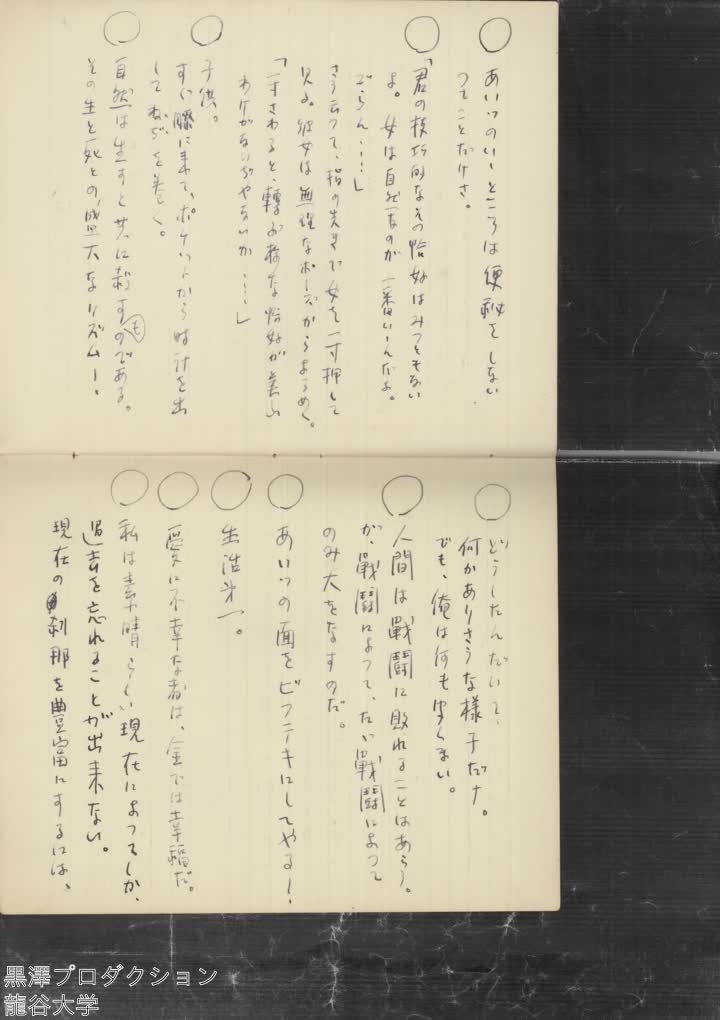 ○ あいつのいーところは便秘をしない
つてことだけさ。
○「君の技巧的なその恰好はみつともない
よ。女は自然なのが一番いーんだよ。
ごらん‥‥」
さう云つて、指の先きで女を一寸押して
見る。彼女は無理なポーズからよろめく。
「一寸さわると、轉ぶ様な恰好が美しい
わけがないぢやないか‥‥」
○ 子供。
すぐ膝に来て、ポケットから時計を出
してねぢを巻く。
○ 自然は生すと共に殺すものである。
その生と死との、盛大なリズムー!
○ どうしたんだいと、
何かありさうな様子だナ。
でも、俺は何も聞くまい。
○ 人間は戰鬪に敗れることはあらう。
が、戰鬪によつて、たゞ戰鬪によつて
のみ大をなすのだ。
○ あいつの面をビフテキにしてやる!
○ 生活第一。
○ 愛に不幸な者は、金では幸福だ。
○ 私は素晴らしい現在によつてしか、
過去を忘れることが出来ない。
現在の刹那を豊富にするには、
黒澤プロダクション
龍谷大学